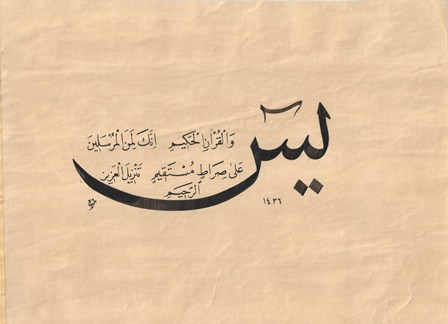 يس
وَالْقُرْآنِ الْحَكِيمِ إِنَّكَ لَمِنَ الْمُرْسَلِينَ
عَلَى صِرَاطٍ مُسْتَقِيمٍ تَنْزِيلَ الْعَزِيزِ
الرَّحِيمِ
١٤٣٦